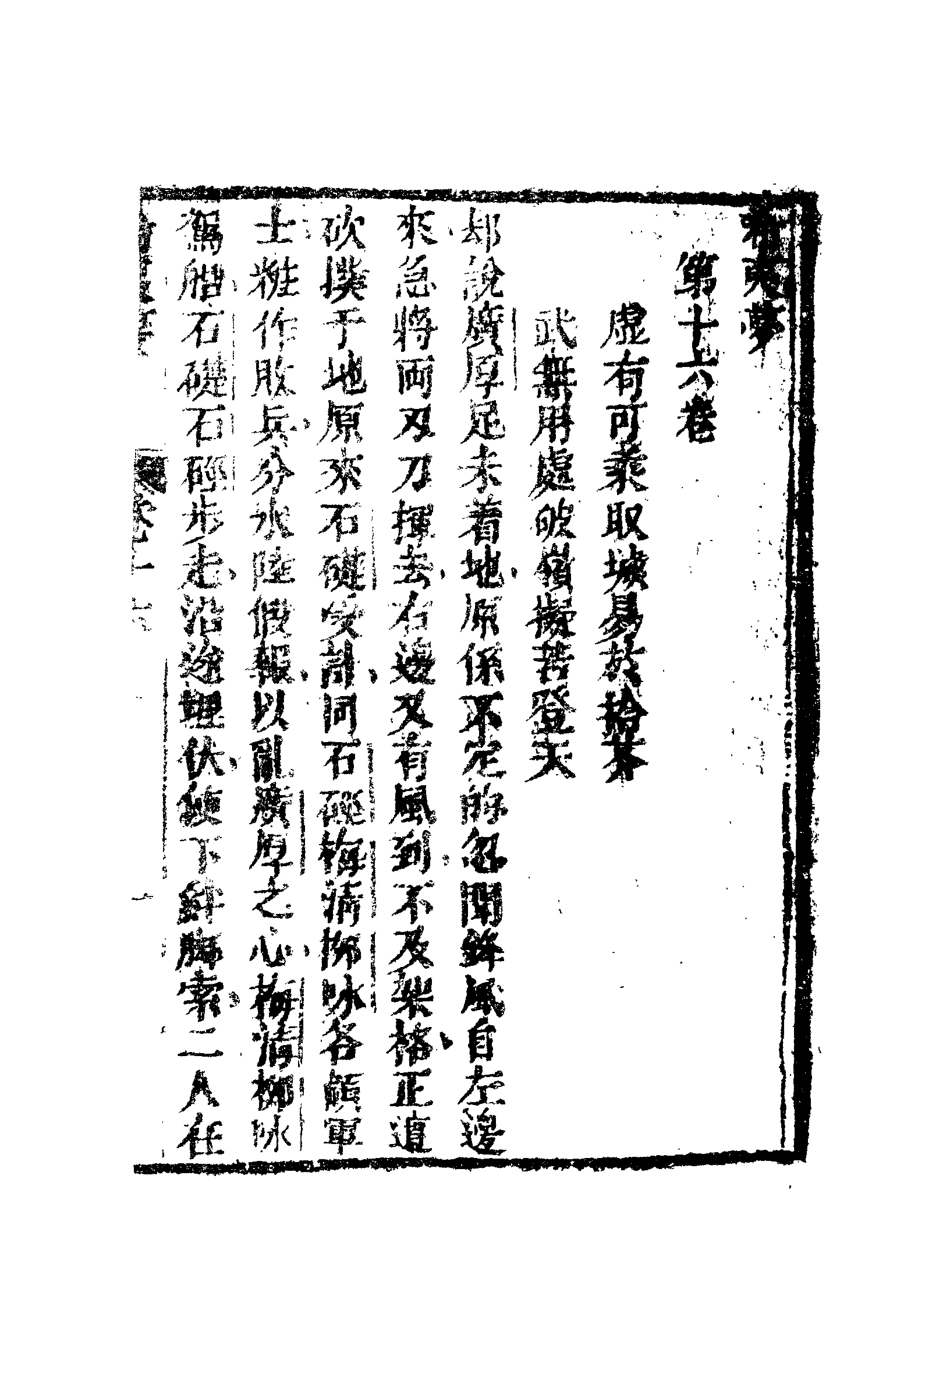 希夷夢
第十六卷
虛有可乘取城易於拾芥
武無用處破嶺擬苦登天
却說廣厚足未着地原係不定的忽聞鋒風自左邊
來急將両刃刀揮去右邊又有風到不及架格正遑
砍撲于地原來石礎受計同石硜梅清栁咏各領軍
士粧作敗兵分水陸假報以亂廣厚之心梅清栁咏
駕船石礎石硜步走沿途埋伏使下絆脚索二人在